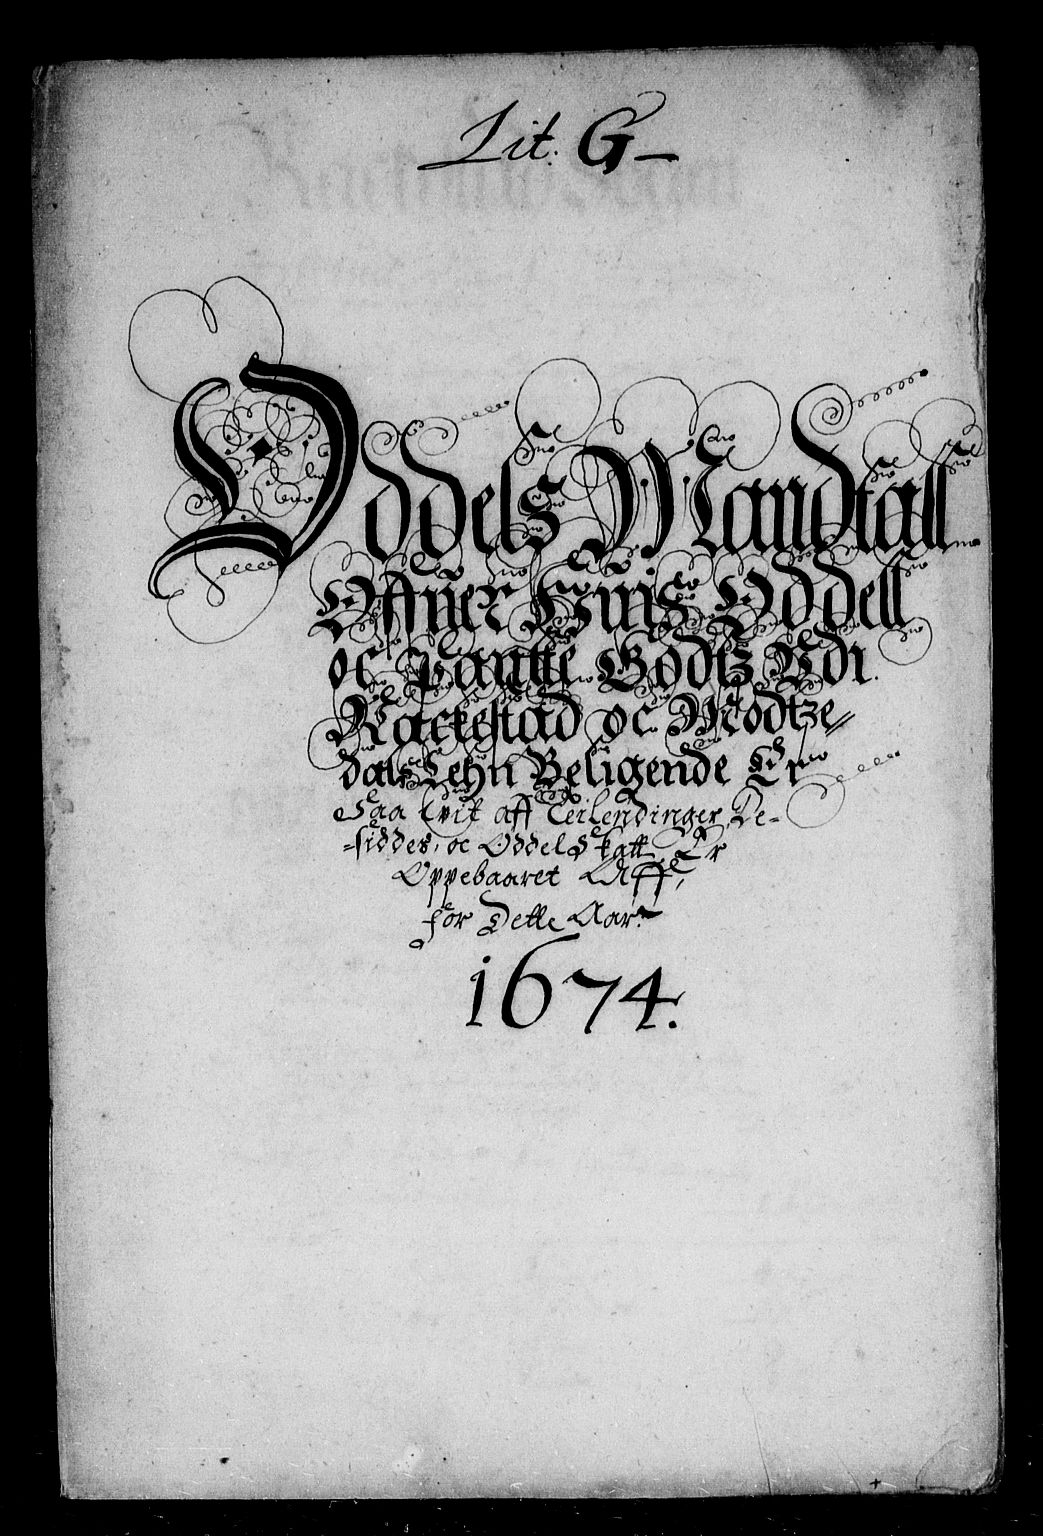 Lit: G
Oddels Mandtall
Offuer Huis Oddell
oc Pantte Godtz Udi
Rackestad oc Modtze=
dals Lehn Beligende Er
Saa Vit aff Teilendinger De=
=siddes, oc Oddel Skatt Er
Oppebaaret Aff,
for Dette Aar.
1674.